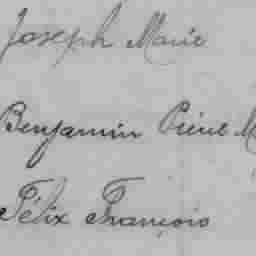 Joseph Marie
Benjamin Pierre M
Félix François